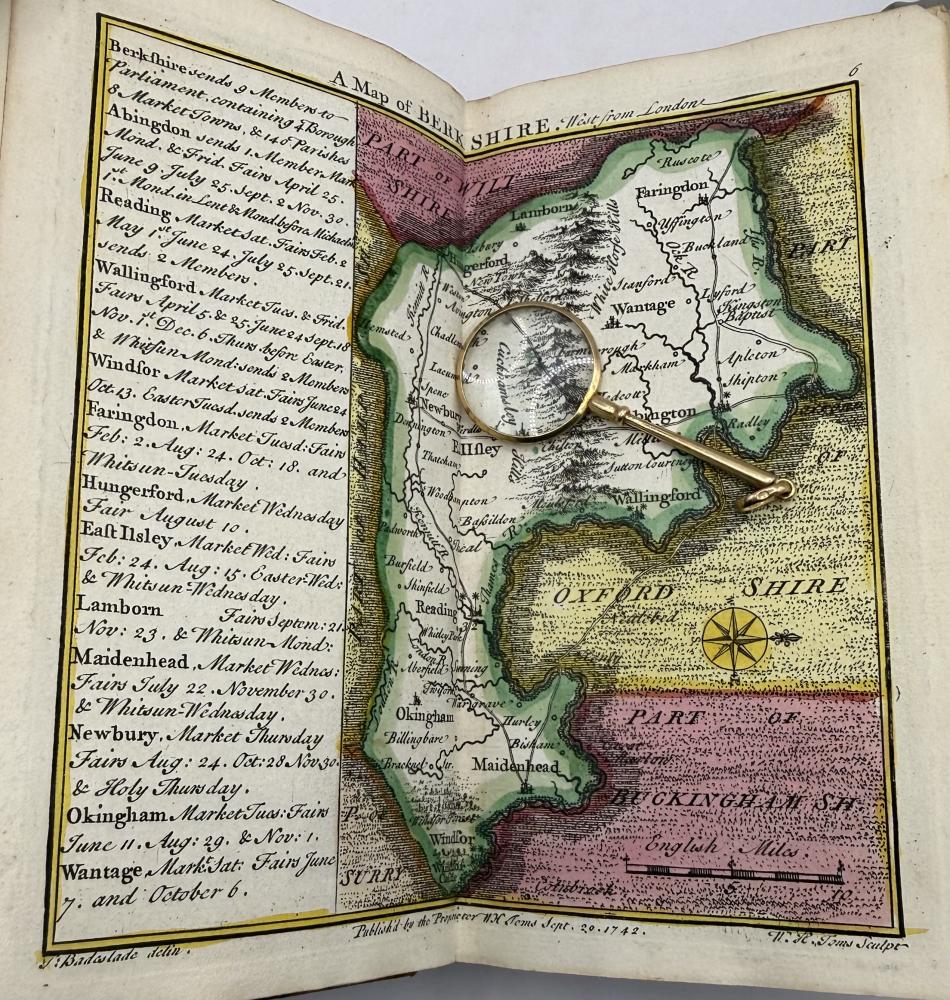 A Map of BERKSHIRE. West from London
6
Berkshire sends 9 Members to
Parliament, containing 4 Borough
8 Market Towns, & 140 Parishes
Abingdon sends 1. Member Mark
Mond. & Frid. Fairs April 25.
June 9. July 25. Sept. 2 Nov. 30.
1.st Mond. in Lent & Mond. before Michaelm
Reading Market Sat. Fairs Feb. 2
May 1st June 24. July 25. Sept. 21.
sends 2 Members.
Wallingford Market Tues. & Frid.
Fairs April 5. & 25. June 24 Sept. 18
Nov. 1st Dec. 6. Thurs before Easter.
& Whitsun-Mond: sends 2 Members
Windsor Market Sat. Fairs June 24
Oct. 13. Easter Tuesd. sends 2 Members
Faringdon. Market Tuesd: Fairs
Feb: 2. Aug: 24. Oct: 18. and
Whitsun-Tuesday.
Hungerford. Market Wednesday
Fair August 10.
East Ilsley. Market Wed: Fairs
Feb: 24. Aug: 15. Easter-Wed:
& Whitsun-Wednesday.
Lamborn Fairs Septem: 21.
Nov: 23. & Whitsun-Mond:
Maidenhead. Market Wednes:
Fairs July 22. November 30.
& Whitsun-Wednesday.
Newbury. Market Thursday
Fairs Aug: 24. Oct: 28 Nov 30.
& Holy Thursday.
Okingham Market Tues: Fairs
June 11. Aug: 29. & Nov: 1.
Wantage Mark.t Sat: Fairs June
7. and October 6.
PART OF WILT
SHIRE
Ruscote
Faringdon
Uffington
Buckland
Lamborn
Hungerford
White Horse Hills
Stanford
Lyford
Wantage
Kingston
Baptist
PART
Markham
Apleton
Shipton
Spene
Newbury
Donnington
Abington
Radley
OF
E Ilsley
Chilton
Sutton Courtney
Thatcham
Wallingford
Woodhampton
Basildon
Kennet R
Burfield
Shinfield
Thames
Reading
OXFORD SHIRE
Aberfield
Twiford
Wargrave
Okingham
Hurley
Billingbare
Bisham
Maidenhead
Windsor Forest
Windsor
SURRY
PART OF
BUCKINGHAM SH
Colnbrook
English Miles
5
10
T: Badeslade delin.
Publish'd by the Proprietor W H Toms Sept. 29. 1742.
W. H. Toms Sculpt